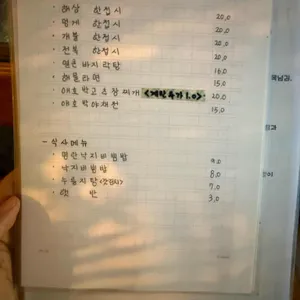 해삼 한접시 20,0
멍게 한접시 20,0
개불 한접시 20,0
전복 한접시 20,0
맑은 바지락탕 16,0
해물라면 15,0
애호박고추장찌개 <계란추가 1.0> 20,0
애호박야채전 15,0
- 식사메뉴
· 명란낙지비빔밥 9.0
· 낙지비빔밥 8.0
· 누룽지탕 7.0
· 햇 반 3.0